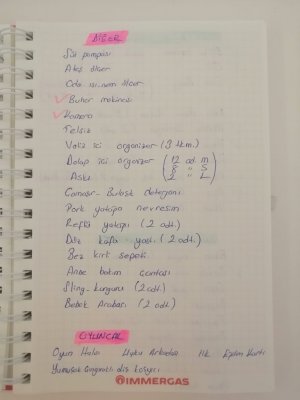 DİĞER
Süt pompası
Ateş ölçer
Oda ısı-nem ölçer
Buhar makinesi
Kamera
Telsiz
Valiz içi organizer (3 tkm.)
Dolap içi organizer (12 ad. M
Askı 8 " S
2 " L)
Çamaşır - Bulaşık deterjanı
Park yatağı nevresim
Reflü yatağı (2 adt.)
Düz kafa yast. (2 adt.)
Bez kirli sepeti
Anne bakım çantası
Sling - kanguru (2 adt.)
Bebek Arabası (2 adt.)
OYUNCAK
Oyun Halısı Uyku Arkadaşı İlk Eğitim Kartı
Yumuşak çıngıraklı diş kaşıyıcı
IMMERGAS